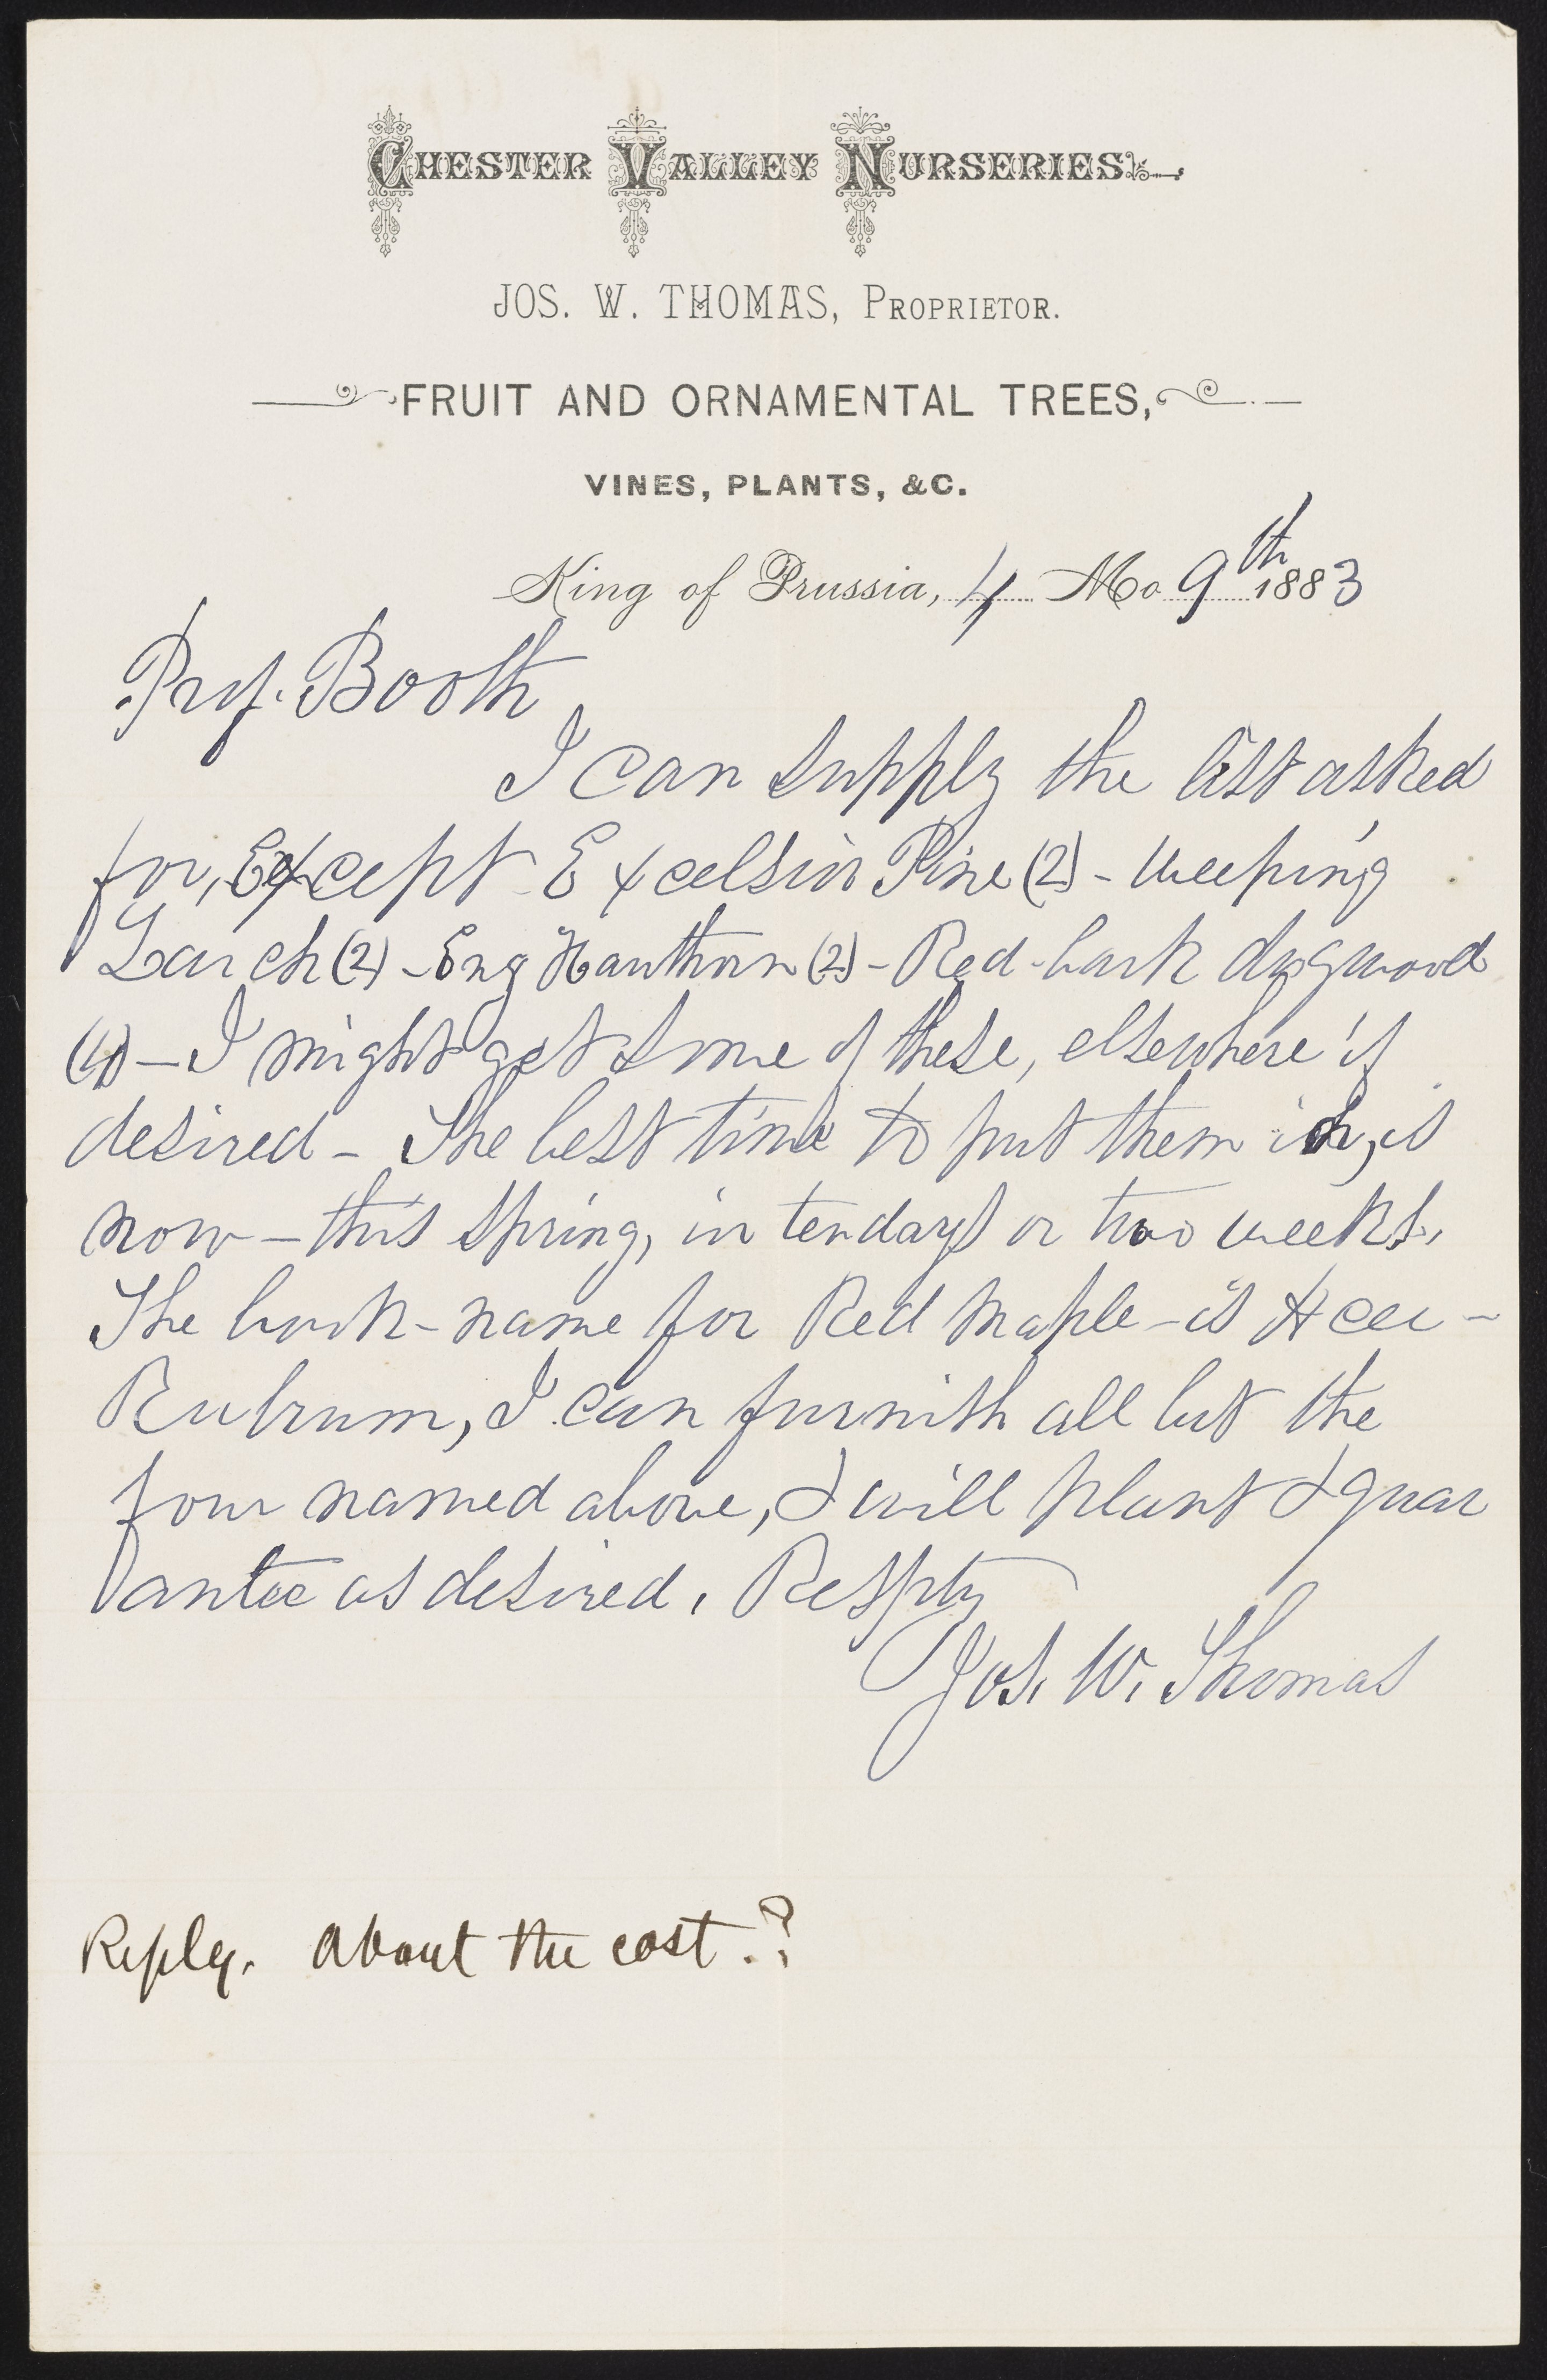 CHESTER VALLEY NURSERIES.
JOS. W. THOMAS, PROPRIETOR.
FRUIT AND ORNAMENTAL TREES,
VINES, PLANTS, &C.
King of Prussia, 4 Mo 9th 1883
Prof. Booth
I can supply the list asked
for, Except Excelsior Pine (2) - Weeping
Larch (2) - Eng Hawthorn (2) - Red-bark dogwood
(4) - I might get some of these, elsewhere if
desired - The best time to put them in, is
now - this spring, in ten days or two weeks.
The book-name for Red Maple - is Acer -
Rubrum, I can furnish all but the
four named above, & will plant & guar
antee as desired. Respty
Jos. W. Thomas
Reply. About the cost.?